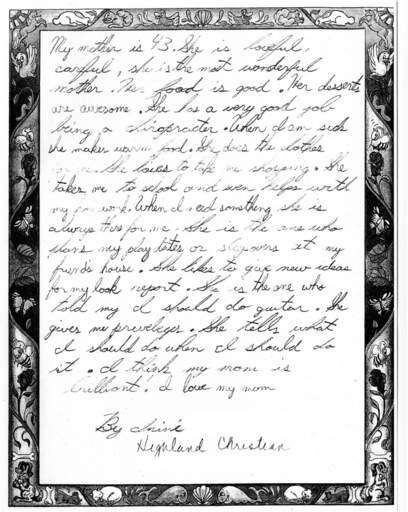 My mother is 43. She is loveful,
careful, she is the most wonderful
mother. Her food is good. Her desserts
are awesome. She has a very good job
being a chiropracter. When I am sick
she makes warm food. She does the clothes
She loves to take me shopping. She
takes me to school and even helps with
my work. When I need something she is
always there for me. She is the one who
plans my play dates or sleepovers at my
friend's house. She likes to give new ideas
for my book report. She is the one who
told my I should do guitar. She
gives me privileges. She tells what
I should do when I should do
it. I think my mom is
brilliant. I love my mom
By
Highland Christian